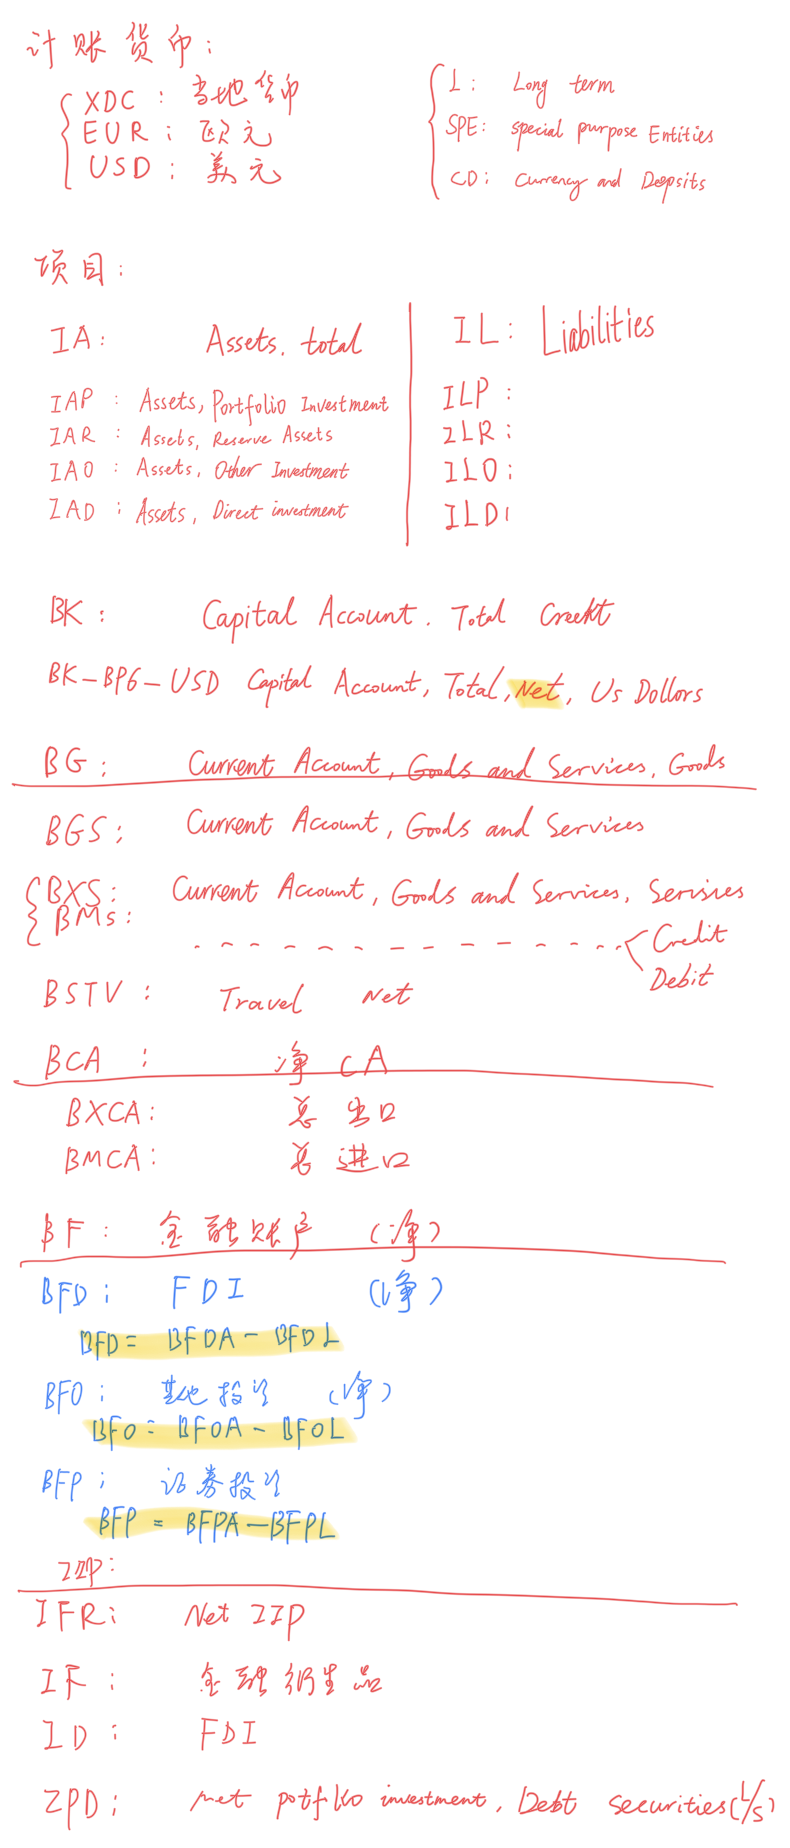 计账货币:
XDC: 当地货币
EUR: 欧元
USD: 美元
L: Long term
SPE: special purpose Entities
CD: Currency and Deopsits
项目:
IA: Assets, total
IAP: Assets, Portfolio Investment
IAR: Assets, Reserve Assets
IAO: Assets, Other Investment
IAD: Assets, Direct investment
IL: Liabilities
ILP:
ILR:
ILO:
ILD:
BK: Capital Account. Total
BK-BP6-USD Capital Account, Total, Net, Us Dollors
BG: Current Account, Goods and Services, Goods
BGS: Current Account, Goods and Services
BXS: Current Account, Goods and Services,
BMS: - - - - - - - - - - - - - -
Credit
Debit
BSTV: Travel Net
BCA: 净 CA
BXCA: 总出口
BMCA: 总进口
BF: 金融账户 (净)
BFD: FDI (净)
BFD = BFDA - BFDL
BFO: 其他投资 (净)
BFO = BFOA - BFOL
BFP: 证券投资
BFP = BFPA - BFPL
IIP:
IFR: Net IIP
IF: 金融衍生品
ID: FDI
IPD: net investment, Debt securities (L/S)